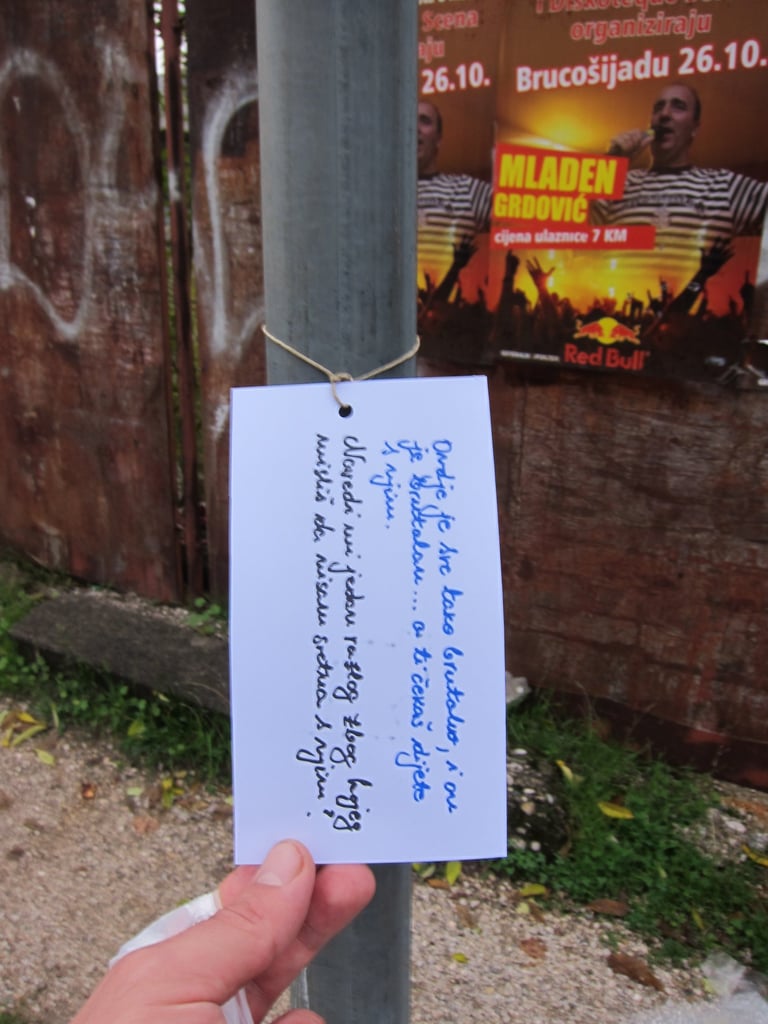 Scena
aju
26.10.
i Diskoteque
organiziraju
Brucošijadu 26.10.
MLADEN
GRDOVIĆ
cijena ulaznice 7 KM
Red Bull
Ovdje je sve tako brutalno, i on
je brutalan... a ti čekaš dijete
s njim.
Navedi mi jedan razlog zbog kojeg
misliš da nisam sretna s njim?